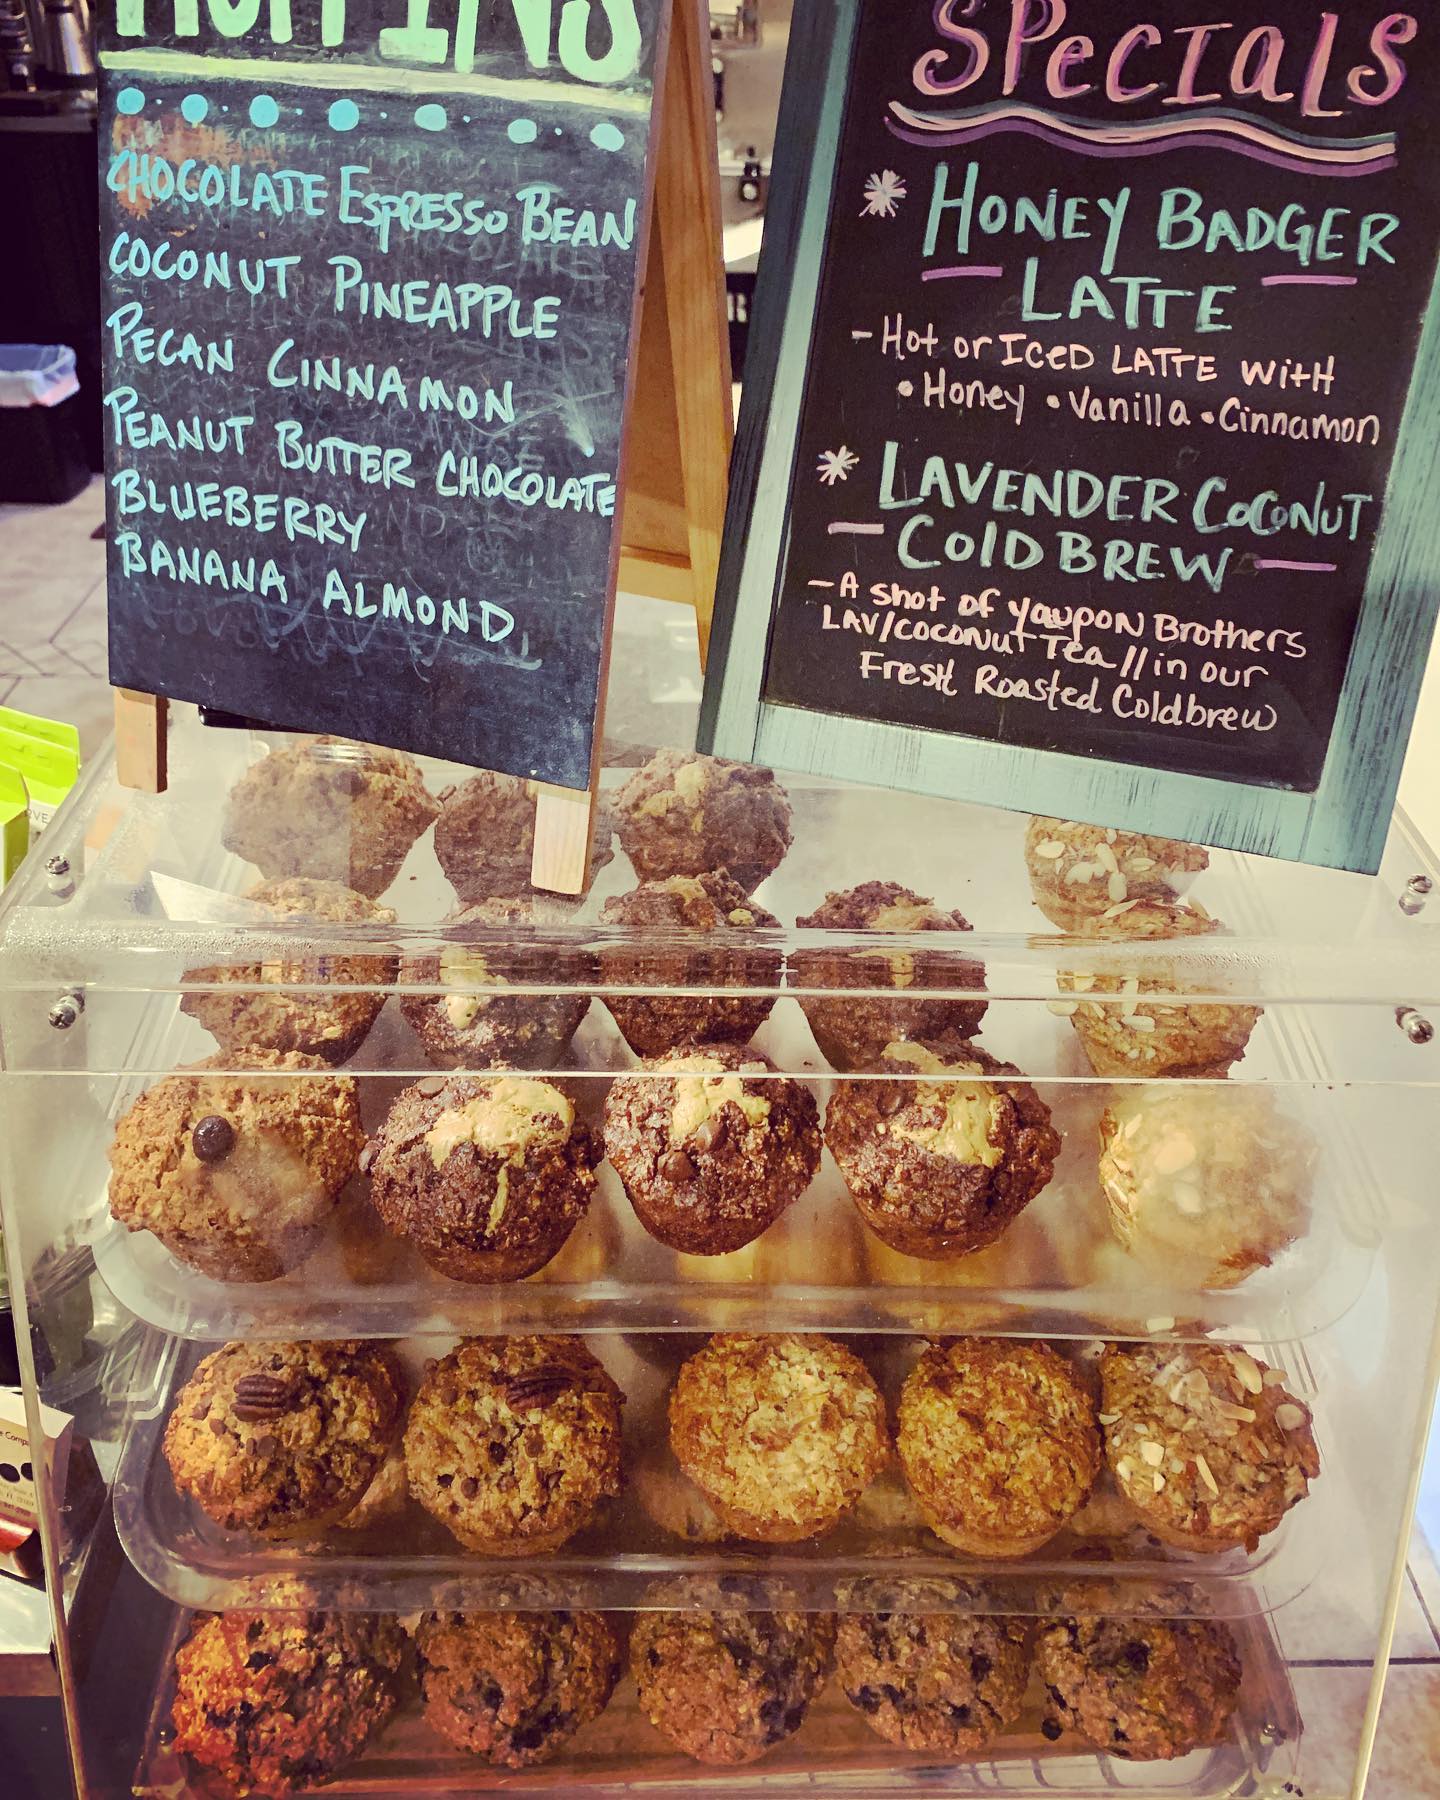 MUFFINS
CHOCOLATE ESPRESSO BEAN
COCONUT PINEAPPLE
PECAN CINNAMON
PEANUT BUTTER CHOCOLATE
BLUEBERRY
BANANA ALMOND
SPecIalS
* HONEY BADGER
LATTE
- Hot or ICED LATTE with
• Honey • Vanilla • Cinnamon
* LAVENDER COCONUT
COlD BREW
- A shot of YAUPON Brothers
LAV/COCONUT Tea // in our
FResH Roasted Coldbrew